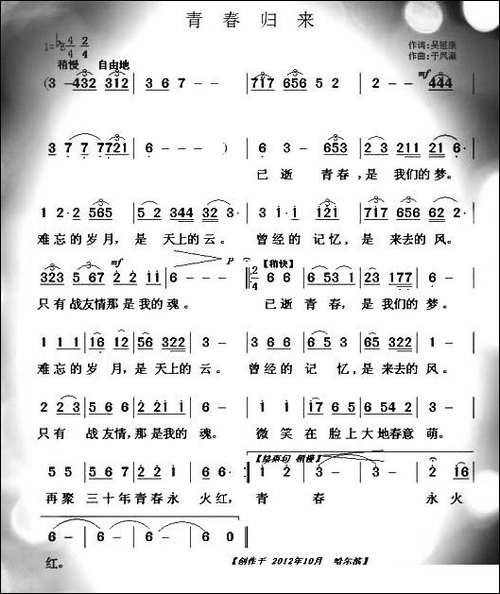 青春归来
1=♭B 4/4 2/4
作词:吴冠康
作曲:于凤瀛
稍慢 自由地
(3 - 432 312 | 3 6 7 - - | 717 656 5 2 | 2 - - 444 |
3 7 7 7721 | 6 - - - ) | 6 3 - 653 | 223 211 21 6· |
已逝 青春,是 我们的梦。
1 2·2 565 | 5 2 344 32 3 | 3 - 1 121 | 717 656 6 2 |
难忘的岁月,是 天上的云。 曾经的 记忆,是 来去的 风。
mf p 【稍快】
323 5 67 2 2 1 1 | 6 - - - 2/4 6 6 | 6 53 1 | 23 177 | 6 - |
只有战友情那是我的魂。 已逝 青春,是我们的 梦。
1 1 | 16 12 | 56 322 | 3 - | 3 3 | 6 5 3 | 65 322 | 1 - |
难忘的岁 月,是天上的云。 曾经的记 忆,是来去的 风。
2 23 | 5 6 6 | 2 21 1 | 6 - | 1 1 | 17 6 5 | 6 54 2 | 3 - |
只有 战友情,那是我的 魂。 微笑在 脸上大地春意 萌。
【结束句 稍慢】
5 5 | 5 6 7 | 2 2 1 | 6 6· | 1 2 | 3 - | 3 - | 2 16 |
再聚 三十年青春永 火红, 青 春 永火
6 - | 6 - | 6 - | 6 0
红。
【创作于 2012年10月 哈尔滨】